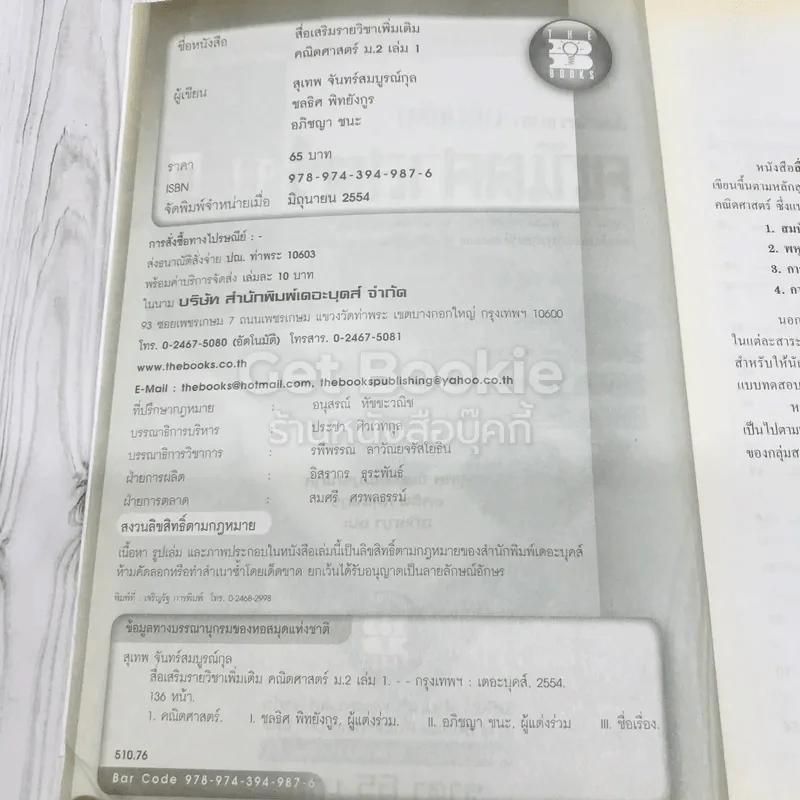 ชื่อหนังสือ สื่อเสริมรายวิชาเพิ่มเติม
คณิตศาสตร์ ม.2 เล่ม 1
THE
B
BOOKS
ผู้เขียน สุเทพ จันทร์สมบูรณ์กุล
ชลธิศ พิทยังกูร
อภิชญา ชนะ
ราคา 65 บาท
ISBN 978-974-394-987-6
จัดพิมพ์จำหน่ายเมื่อ มิถุนายน 2554
การสั่งซื้อทางไปรษณีย์ : -
ส่งธนาณัติสั่งจ่าย ปณ. ท่าพระ 10603
พร้อมค่าบริการจัดส่ง เล่มละ 10 บาท
ในนาม บริษัท สำนักพิมพ์เดอะบุคส์ จำกัด
93 ซอยเพชรเกษม 7 ถนนเพชรเกษม แขวงวัดท่าพระ เขตบางกอกใหญ่ กรุงเทพฯ 10600
โทร. 0-2467-5080 (อัตโนมัติ) โทรสาร. 0-2467-5081
www.thebooks.co.th
E-Mail : thebooks@hotmail.com, thebookspublishing@yahoo.co.th
Get Bookie
ร้านหนังสือบุ๊คกี้
ที่ปรึกษากฎหมาย : อนุสรณ์ หัชชะวณิช
บรรณาธิการบริหาร : ประชา ศิวเวทกุล
บรรณาธิการวิชาการ : รพีพรรณ ลาวัณยจรัสโยธิน
ฝ่ายการผลิต : อิสรากร ธุระพันธ์
ฝ่ายการตลาด : สมศรี ศรพลธรรม์
สงวนลิขสิทธิ์ตามกฎหมาย
เนื้อหา รูปเล่ม และภาพประกอบในหนังสือเล่มนี้เป็นลิขสิทธิ์ตามกฎหมายของสำนักพิมพ์เดอะบุคส์
ห้ามคัดลอกหรือทำสำเนาซ้ำโดยเด็ดขาด ยกเว้นได้รับอนุญาตเป็นลายลักษณ์อักษร
พิมพ์ที่ : เจริญรัฐ การพิมพ์ โทร. 0-2468-2998
ข้อมูลทางบรรณานุกรมของหอสมุดแห่งชาติ
สุเทพ จันทร์สมบูรณ์กุล
สื่อเสริมรายวิชาเพิ่มเติม คณิตศาสตร์ ม.2 เล่ม 1. - - กรุงเทพฯ : เดอะบุคส์, 2554.
136 หน้า.
1. คณิตศาสตร์. I. ชลธิศ พิทยังกูร, ผู้แต่งร่วม. II. อภิชญา ชนะ, ผู้แต่งร่วม III. ชื่อเรื่อง.
510.76
Bar Code 978-974-394-987-6
หนังสือสื่
เขียนขึ้นตามหลักสู
คณิตศาสตร์ ซึ่งแบ
1. สมบั
2. พหุ
3. กา
4. กา
นอก
ในแต่ละสาระ
สำหรับให้นัก
แบบทดสอบ
ห
เป็นไปตาม
ของกลุ่มส